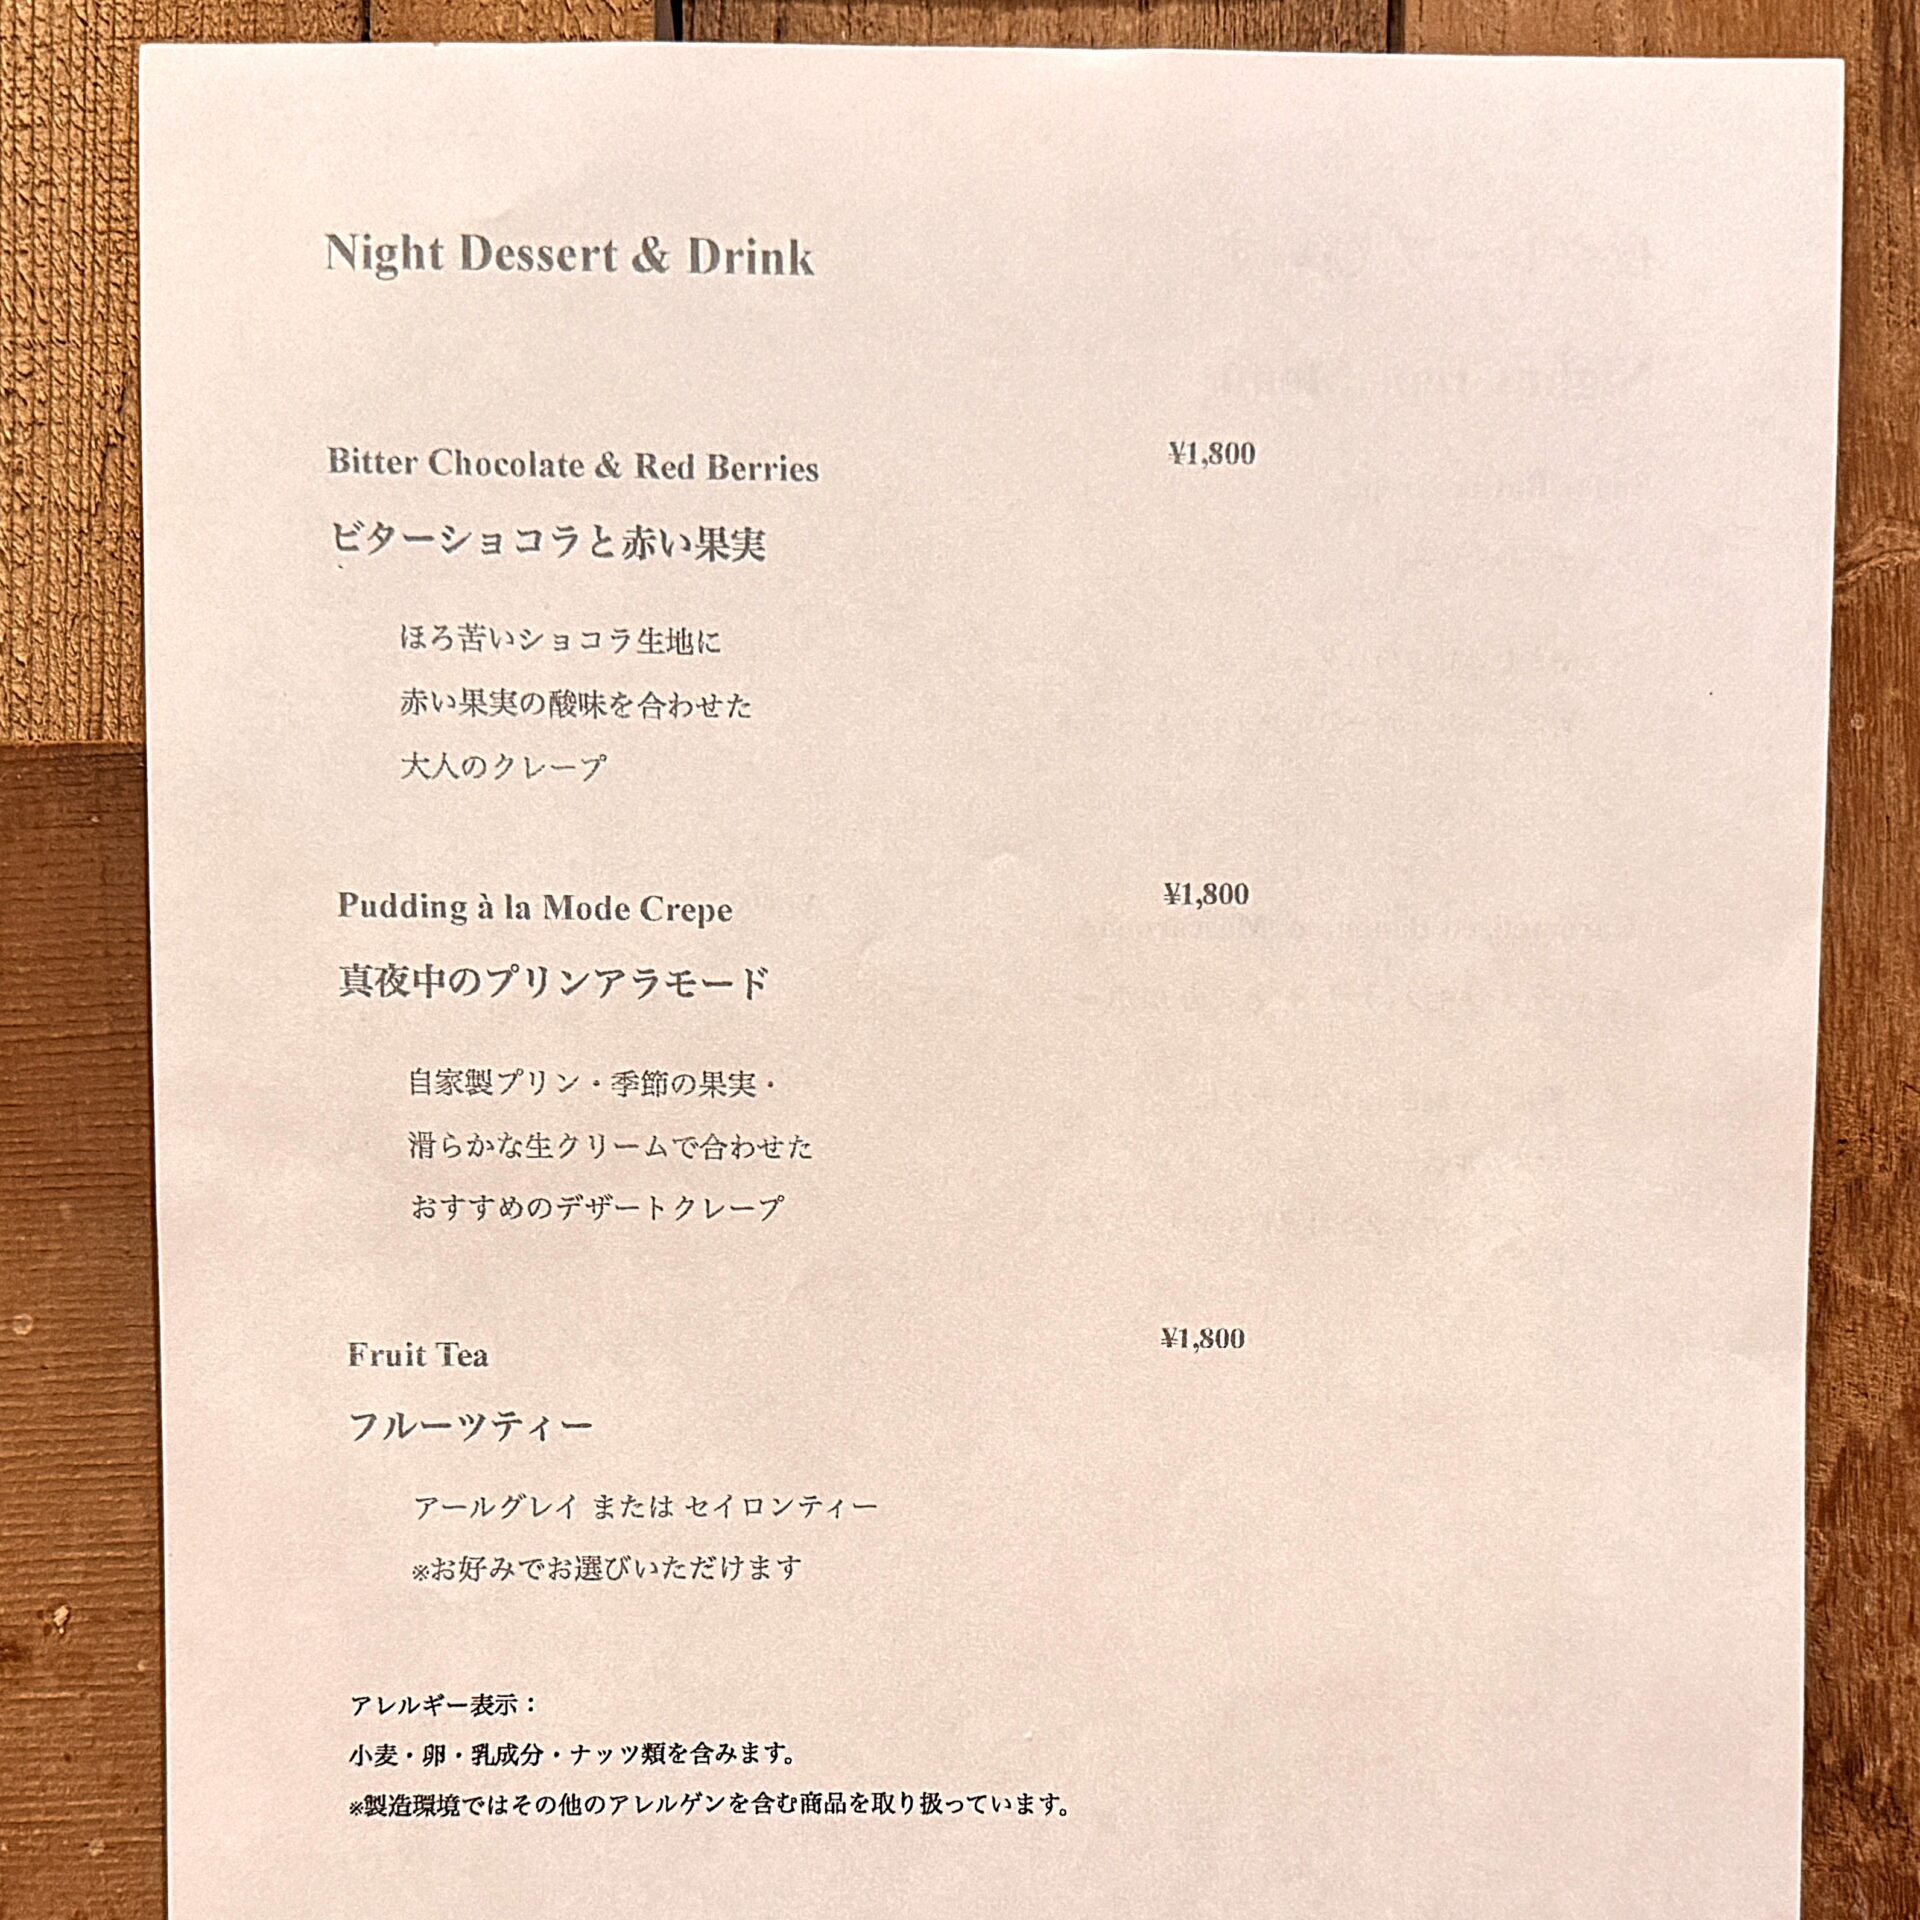 Night Dessert & Drink
Bitter Chocolate & Red Berries ¥1,800
ビターショコラと赤い果実
ほろ苦いショコラ生地に
赤い果実の酸味を合わせた
大人のクレープ
Pudding à la Mode Crepe ¥1,800
真夜中のプリンアラモード
自家製プリン・季節の果実・
滑らかな生クリームで合わせた
おすすめのデザートクレープ
Fruit Tea ¥1,800
フルーツティー
アールグレイ または セイロンティー
※お好みでお選びいただけます
アレルギー表示：
小麦・卵・乳成分・ナッツ類を含みます。
※製造環境ではその他のアレルゲンを含む商品を取り扱っています。